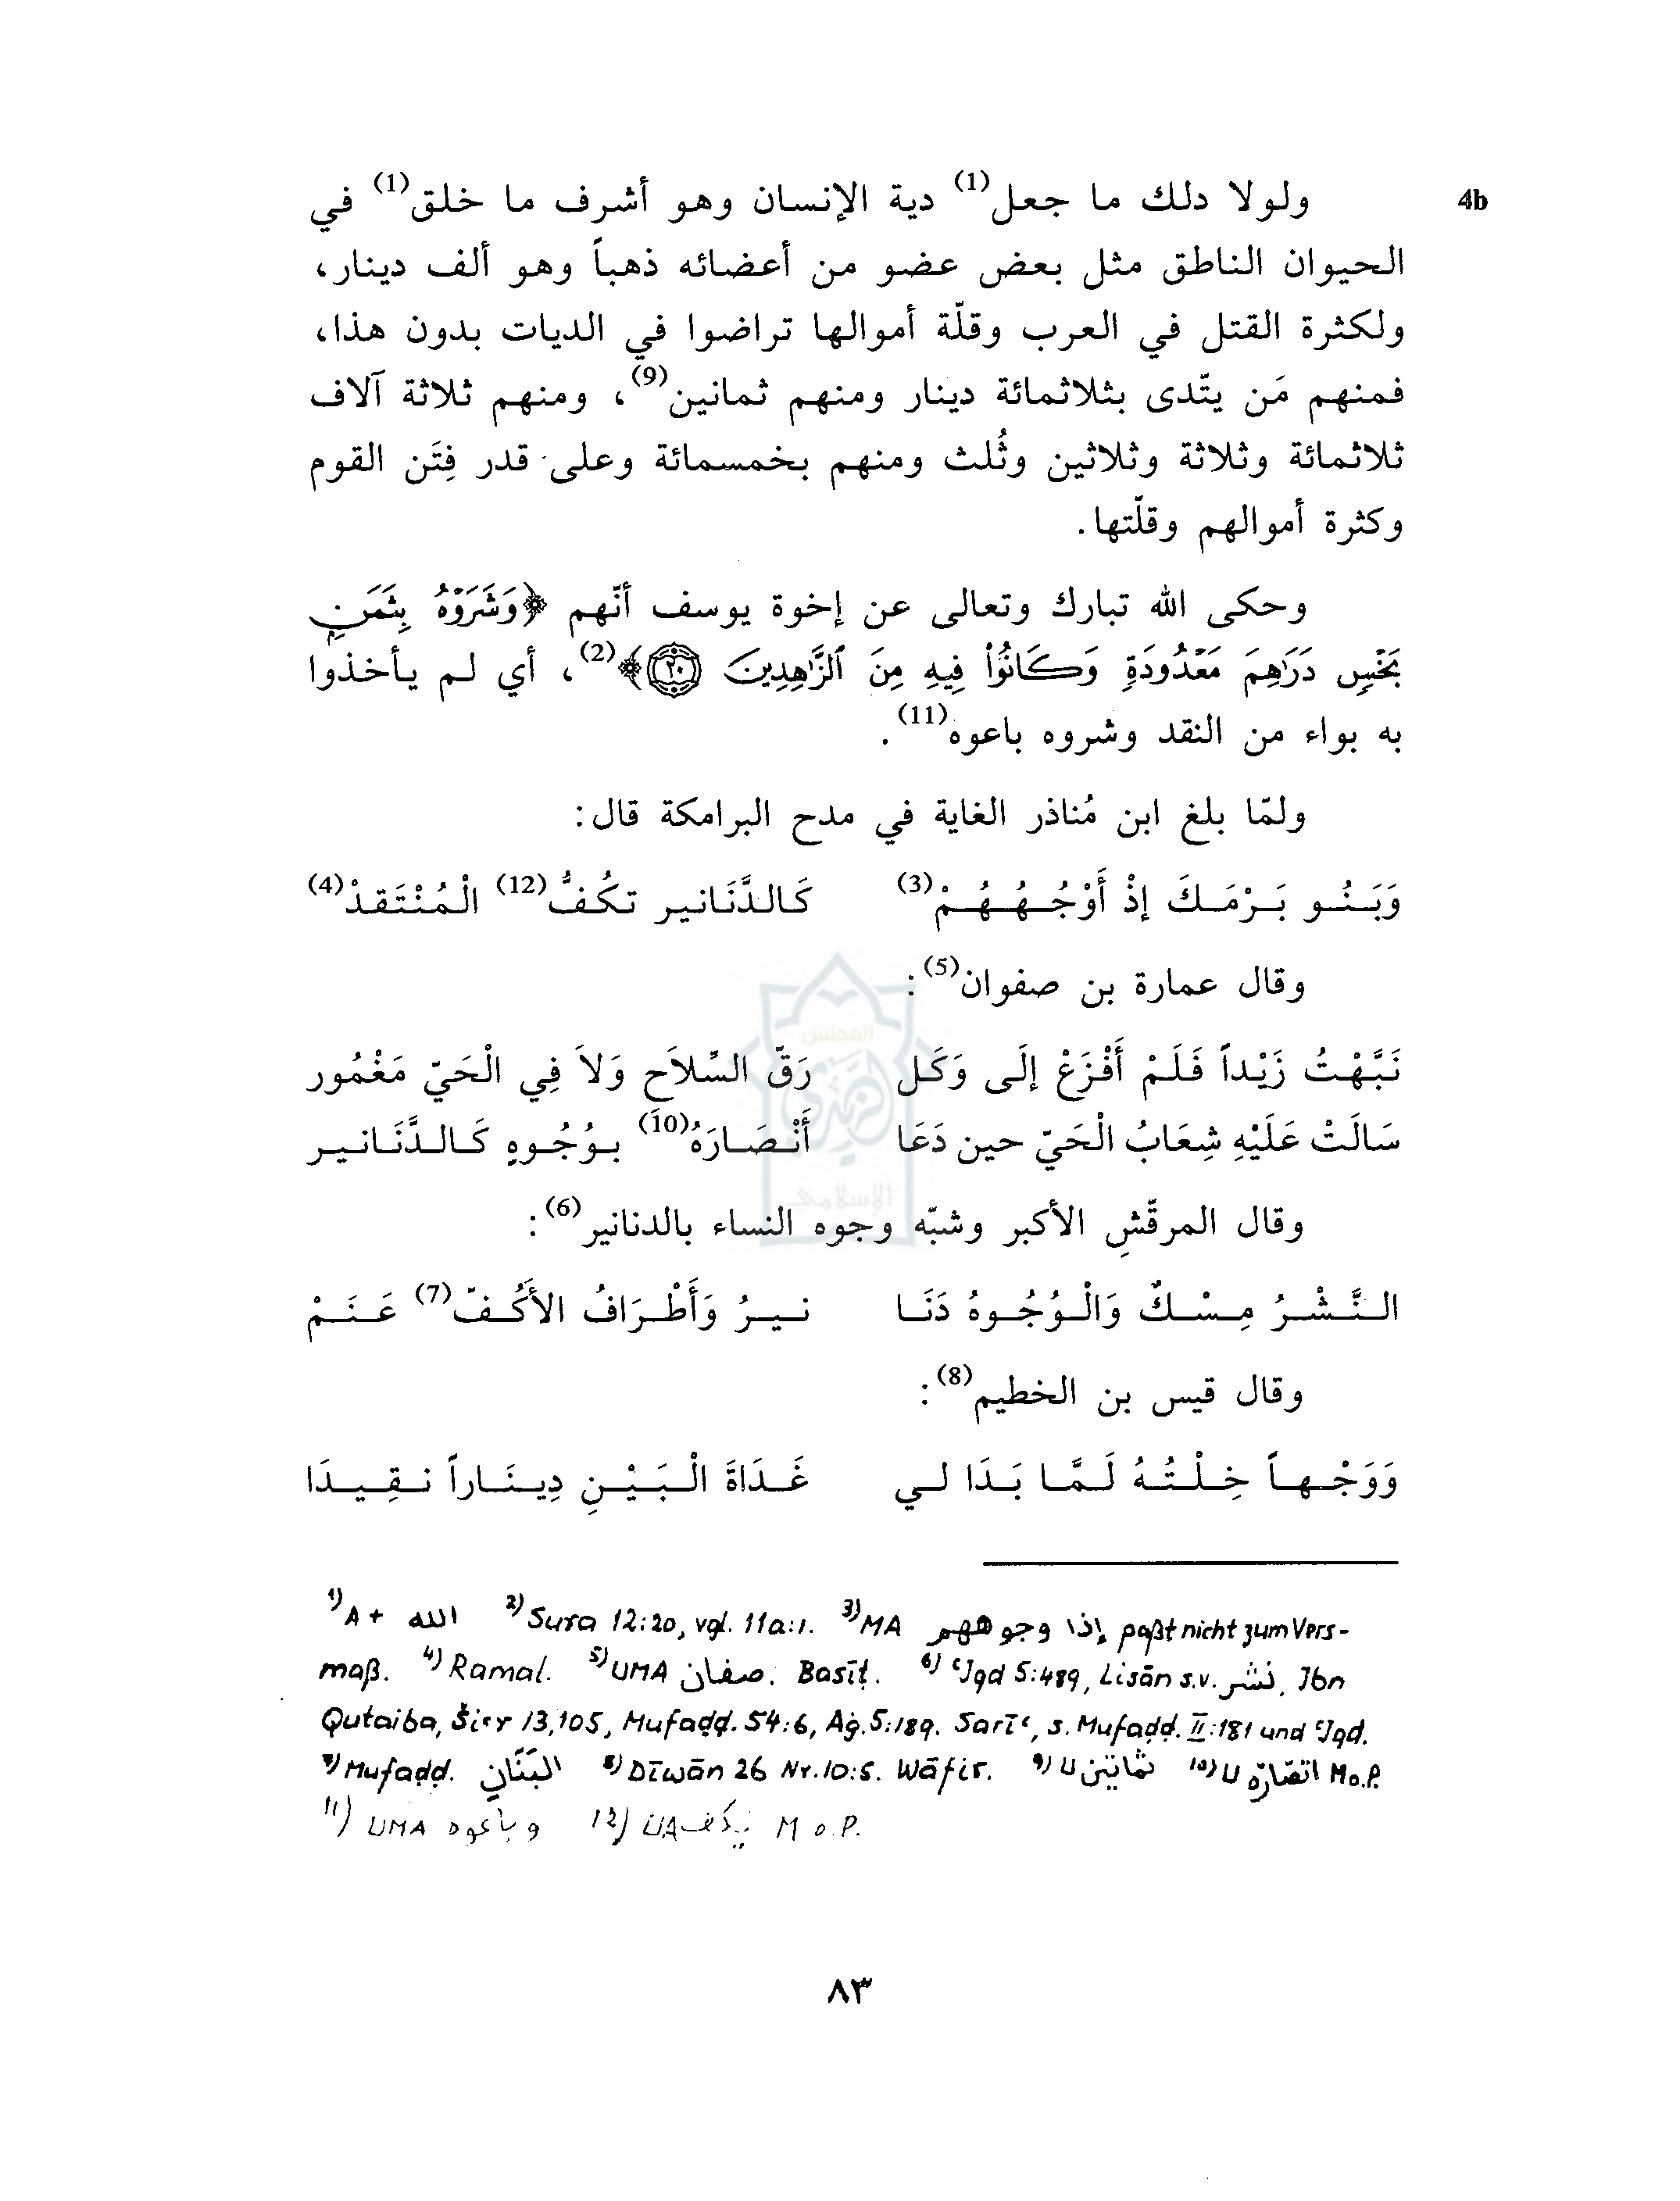 4b
ولولا دلك ما جعل(1) دية الإنسان وهو أشرف ما خلق(1) في
الحيوان الناطق مثل بعض عضو من أعضائه ذهباً وهو ألف دينار،
ولكثرة القتل في العرب وقلّة أموالها تراضوا في الديات بدون هذا،
فمنهم مَن يتّدى بثلاثمائة دينار ومنهم ثمانين(9)، ومنهم ثلاثة آلاف
ثلاثمائة وثلاثة وثلاثين وثُلث ومنهم بخمسمائة وعلى قدر فِتَن القوم
وكثرة أموالهم وقلّتها.
وحكى الله تبارك وتعالى عن إخوة يوسف أنّهم ﴿وَشَرَوْهُ بِثَمَنٍ
بَخْسٍ دَرَٰهِمَ مَعْدُودَةٍ وَكَانُوا۟ فِيهِ مِنَ ٱلزَّٰهِدِينَ ٢٠﴾(2)، أي لم يأخذوا
به بواء من النقد وشروه باعوه(11).
ولمّا بلغ ابن مُناذر الغاية في مدح البرامكة قال:
وَبَنُو بَرْمَكَ إذْ أَوْجُهُهُمْ(3) كَالدَّنَانير تكُفُّ(12) الْمُنْتَقذْ(4)
وقال عمارة بن صفوان(5):
نَبَّهْتُ زَيْداً فَلَمْ أَفْزَعْ إلَى وَكَل رَقّ السِّلاَح وَلاَ فِي الْحَيّ مَغْمُور
سَالَتْ عَلَيْهِ شِعَابُ الْحَيّ حين دَعَا أَنْصَارَهُ(10) بوُجُوهٍ كَالدَّنَانير
وقال المرقّشِ الأكبر وشبّه وجوه النساء بالدنانير(6):
النَّشْرُ مِسْكٌ وَالْوُجُوهُ دَنَا نيرُ وَأَطْرَافُ الأَكُفّ(7) عَنَمْ
وقال قيس بن الخطيم(8):
وَوَجْهاً خِلْتُهُ لَمَّا بَدَا لي غَدَاةَ الْبَيْنِ دِينَاراً نقِيدَا
1) A + الله 2) Sura 12:20, vgl. 11a:1. 3) MA إذا وجوههم paßt nicht zum Vers-
maß. 4) Ramal. 5) UMA صفان. Basīṭ. 6) ʿIqd 5:489, Lisān s.v. نشر, Ibn
Qutaiba, Šiʿr 13,105, Mufaḍḍ. 54:6, Aġ. 5:189. Sarīʿ, s. Mufaḍḍ. II:181 und ʿIqd.
7) Mufaḍḍ. البَنَانِ 8) Dīwān 26 Nr.10:5. Wāfir. 9) U 10) U M o.P.
11) UMA وباعوه 12) UA يكف M o.P.
٨٣
المجلس
الإسلامي